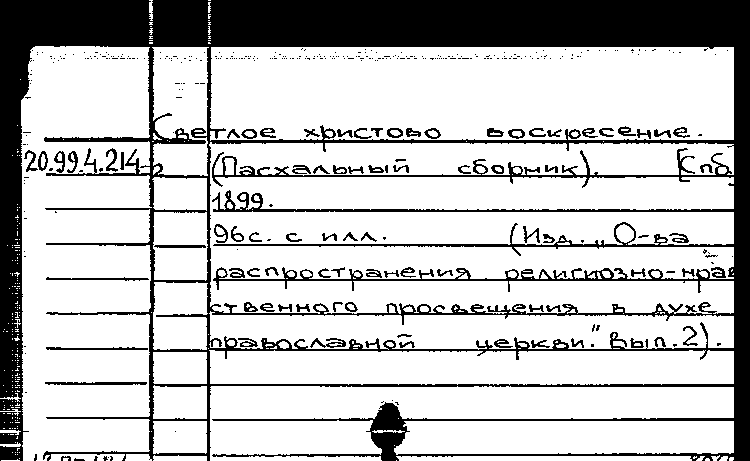 Светлое христово воскресение.
20.99.4.214-2 (Пасхальный сборник). [Спб
1899.
96с. с илл. (Изд. „О-ва
распространения религиозно-нрав
ственного просвещения в духе
православной церкви." Вып. 2).